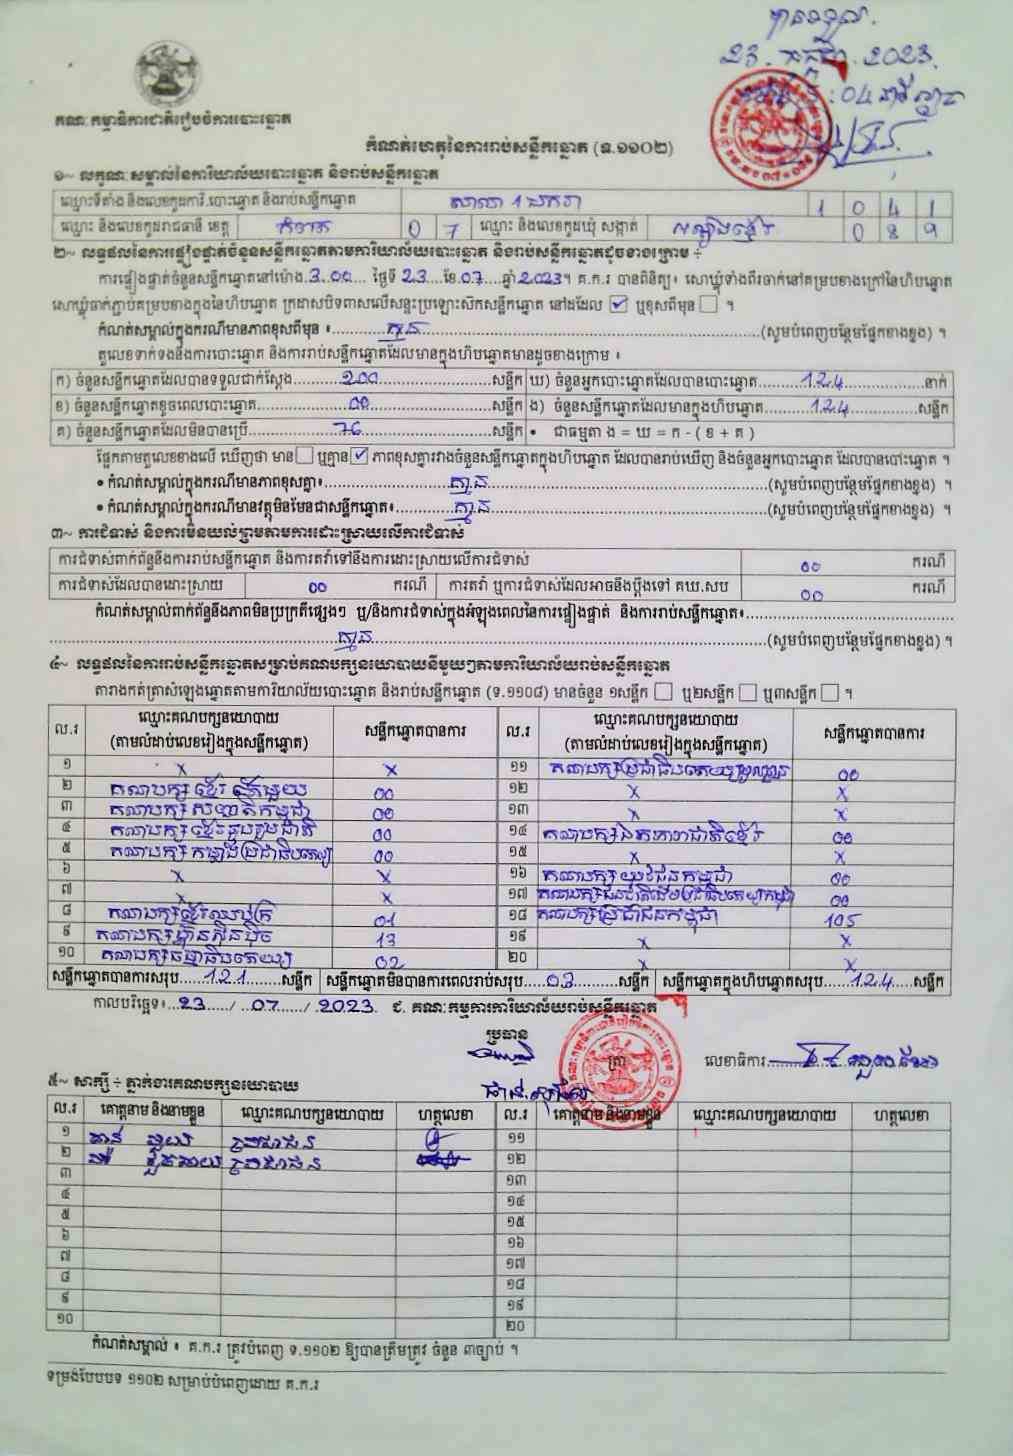 បានទទួល
23 កក្កដា 2023
គណៈកម្មាធិការជាតិរៀបចំការបោះឆ្នោត
កំណត់ហេតុនៃការរាប់សន្លឹកឆ្នោត (ទ.១១០២)
១~ លក្ខណៈសម្គាល់នៃការិយាល័យបោះឆ្នោត និងរាប់សន្លឹកឆ្នោត
ឈ្មោះទីតាំង និងលេខកូដការិ.បោះឆ្នោត និងរាប់សន្លឹកឆ្នោត 1 0 4 1
ឈ្មោះ និងលេខកូដរាជធានី ខេត្ត កំពត 0 7 ឈ្មោះ និងលេខកូដឃុំ សង្កាត់ 0 8 9
២~ លទ្ធផលនៃការផ្ទៀងផ្ទាត់ចំនួនសន្លឹកឆ្នោតតាមការិយាល័យបោះឆ្នោត និងរាប់សន្លឹកឆ្នោតដូចខាងក្រោម ÷
ការផ្ទៀងផ្ទាត់ចំនួនសន្លឹកឆ្នោតនៅម៉ោង 3.00 ថ្ងៃទី 23 ខែ 07 ឆ្នាំ 2023។ គ.ក.រ បានពិនិត្យ៖ សោឃ្មុំទាំងពីរចាក់នៅគម្របខាងក្រៅនៃហិបឆ្នោត
សោឃ្មុំចាក់ភ្ជាប់គម្របខាងក្នុងនៃហិបឆ្នោត ក្រដាសបិទពាសលើសន្ទះប្រឡោះស៊កសន្លឹកឆ្នោត នៅដដែល ☑ ឬខុសពីមុន ☐ ។
កំណត់សម្គាល់ក្នុងករណីមានភាពខុសពីមុន ៖ គ្មាន (សូមបំពេញបន្ថែមផ្នែកខាងខ្នង) ។
តួលេខទាក់ទងនឹងការបោះឆ្នោត និងការរាប់សន្លឹកឆ្នោតដែលមានក្នុងហិបឆ្នោតមានដូចខាងក្រោម ៖
ក) ចំនួនសន្លឹកឆ្នោតដែលបានទទួលជាក់ស្តែង 200 សន្លឹក ឃ) ចំនួនអ្នកបោះឆ្នោតដែលបានបោះឆ្នោត 124 នាក់
ខ) ចំនួនសន្លឹកឆ្នោតខូចពេលបោះឆ្នោត 00 សន្លឹក ង) ចំនួនសន្លឹកឆ្នោតដែលមានក្នុងហិបឆ្នោត 124 សន្លឹក
គ) ចំនួនសន្លឹកឆ្នោតដែលមិនបានប្រើ 76 សន្លឹក • ជាធម្មតា ង = ឃ = ក - ( ខ + គ )
ផ្អែកតាមតួលេខខាងលើ ឃើញថា មាន ☐ ឬគ្មាន ☑ ភាពខុសគ្នារវាងចំនួនសន្លឹកឆ្នោតក្នុងហិបឆ្នោត ដែលបានរាប់ឃើញ និងចំនួនអ្នកបោះឆ្នោត ដែលបានបោះឆ្នោត ។
• កំណត់សម្គាល់ក្នុងករណីមានភាពខុសគ្នា៖ គ្មាន (សូមបំពេញបន្ថែមផ្នែកខាងខ្នង) ។
• កំណត់សម្គាល់ក្នុងករណីមានវត្ថុមិនមែនជាសន្លឹកឆ្នោត៖ គ្មាន (សូមបំពេញបន្ថែមផ្នែកខាងខ្នង) ។
៣~ ការជំទាស់ និងការមិនយល់ព្រមតាមការដោះស្រាយលើការជំទាស់
ការជំទាស់ពាក់ព័ន្ធនឹងការរាប់សន្លឹកឆ្នោត និងការតវ៉ាទៅនឹងការដោះស្រាយលើការជំទាស់ 00 ករណី
ការជំទាស់ដែលបានដោះស្រាយ 00 ករណី ការតវ៉ា ឬការជំទាស់ដែលអាចនឹងប្តឹងទៅ គឃ.សប 00 ករណី
កំណត់សម្គាល់ពាក់ព័ន្ធនឹងភាពមិនប្រក្រតីផ្សេងៗ ឬ/និងការជំទាស់ក្នុងអំឡុងពេលនៃការផ្ទៀងផ្ទាត់ និងការរាប់សន្លឹកឆ្នោត៖
គ្មាន (សូមបំពេញបន្ថែមផ្នែកខាងខ្នង) ។
៤~ លទ្ធផលនៃការរាប់សន្លឹកឆ្នោតសម្រាប់គណបក្សនយោបាយនីមួយៗតាមការិយាល័យរាប់សន្លឹកឆ្នោត
តារាងកត់ត្រាសំឡេងឆ្នោតតាមការិយាល័យបោះឆ្នោត និងរាប់សន្លឹកឆ្នោត (ទ.១១០៨) មានចំនួន ១សន្លឹក ☐ ឬ២សន្លឹក ☐ ឬ៣សន្លឹក ☐ ។
ល.រ ឈ្មោះគណបក្សនយោបាយ (តាមលំដាប់លេខរៀងក្នុងសន្លឹកឆ្នោត) សន្លឹកឆ្នោតបានការ ល.រ ឈ្មោះគណបក្សនយោបាយ (តាមលំដាប់លេខរៀងក្នុងសន្លឹកឆ្នោត) សន្លឹកឆ្នោតបានការ
១ x x ១១ គណបក្សប្រជាធិបតេយ្យមូលដ្ឋាន 00
២ គណបក្សខ្មែរតែមួយ 00 ១២ x x
៣ គណបក្សសញ្ជាតិកម្ពុជា 00 ១៣ x x
៤ គណបក្សខ្មែររួបរួមជាតិ 00 ១៤ គណបក្សឯកភាពជាតិខ្មែរ 00
៥ គណបក្សកម្លាំងប្រជាធិបតេយ្យ 00 ១៥ x x
៦ x x ១៦ គណបក្សយុវជនកម្ពុជា 00
៧ x x ១៧ គណបក្សជនជាតិដើមប្រជាធិបតេយ្យកម្ពុជា 00
៨ គណបក្សខ្មែរឈប់ក្រ 01 ១៨ គណបក្សប្រជាជនកម្ពុជា 105
៩ គណបក្សហ្វ៊ុនស៊ិនប៉ិច 13 ១៩ x x
១០ គណបក្សធម្មាធិបតេយ្យ 02 ២០ x x
សន្លឹកឆ្នោតបានការសរុប 121 សន្លឹក សន្លឹកឆ្នោតមិនបានការពេលរាប់សរុប 03 សន្លឹក សន្លឹកឆ្នោតក្នុងហិបឆ្នោតសរុប 124 សន្លឹក
កាលបរិច្ឆេទ៖ 23 / 07 / 2023 ជ. គណៈកម្មការការិយាល័យរាប់សន្លឹកឆ្នោត
ប្រធាន
ត្រា លេខាធិការ
៥~ សាក្សី ÷ ភ្នាក់ងារគណបក្សនយោបាយ
ល.រ គោត្តនាម និងនាមខ្លួន ឈ្មោះគណបក្សនយោបាយ ហត្ថលេខា ល.រ គោត្តនាម និងនាមខ្លួន ឈ្មោះគណបក្សនយោបាយ ហត្ថលេខា
១ ប្រជាជន ១១
២ ប្រជាជន ១២
៣ ១៣
៤ ១៤
៥ ១៥
៦ ១៦
៧ ១៧
៨ ១៨
៩ ១៩
១០ ២០
កំណត់សម្គាល់ ៖ គ.ក.រ ត្រូវបំពេញ ទ.១១០២ ឱ្យបានត្រឹមត្រូវ ចំនួន ៣ច្បាប់ ។
ទម្រង់បែបបទ ១១០២ សម្រាប់បំពេញដោយ គ.ក.រ